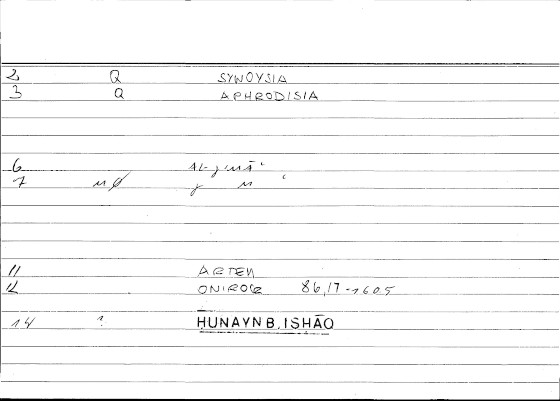 2 Q SYNOYSIA
3 Q APHRODISIA
6 al-ǧimāʿ
7 m
11 ARTEM
12 ONIROCR 86,17-160.5
14 ? ḤUNAYN B. ISḤĀQ